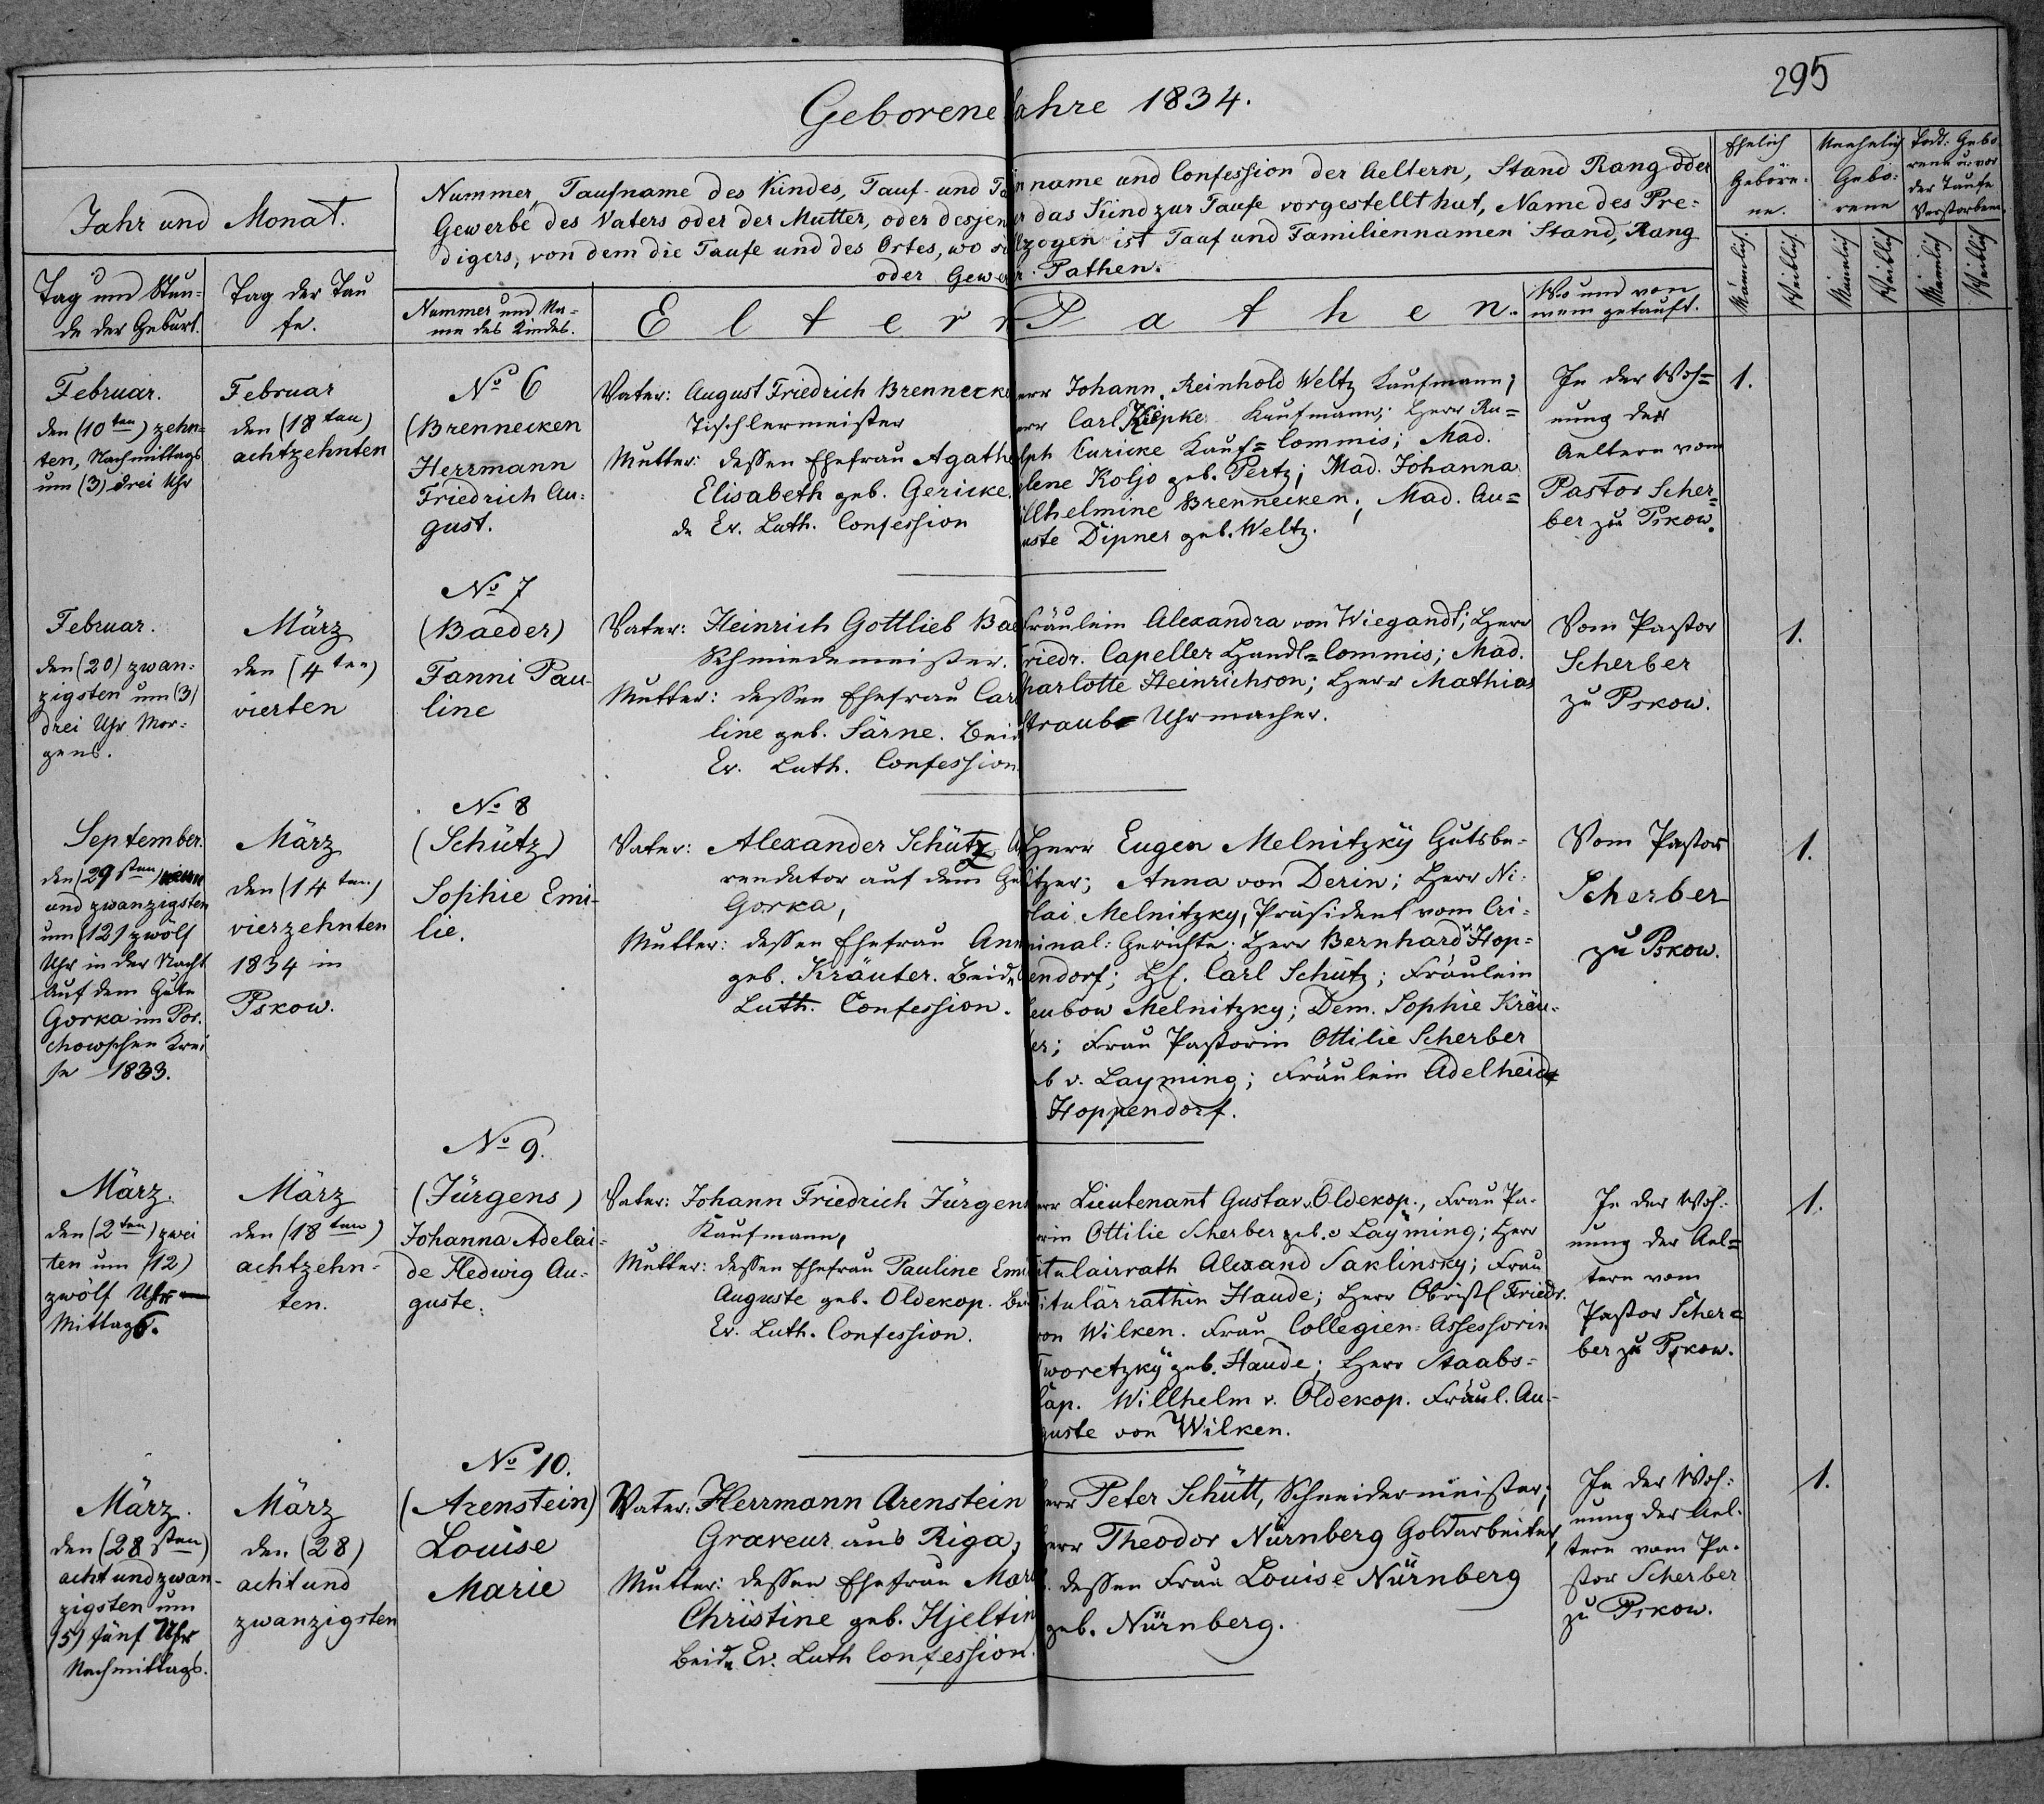 295
Geborene ahre 1834.
Jahr und Monat.
Tag und Stun-
de der Geburt.
Tag der Tau
fe.
Nummer, Taufname des Kindes, Tauf- und name und Confession der Aeltern, Stand Rang oder
Gewerbe des Vaters oder der Mutter, oder desjen das Kind zur Taufe vorgestellt hat, Name des Pre-
digers, von dem die Taufe und des Ortes, wo zogen ist Tauf und Familiennamen Stand, Rang
oder Gewer Pathen.
Nummer und Na-
me des Kindes.
Eltern
Pathen.
Wo und von
wem getauft.
Ehelich
Gebore-
ne.
Unehelich
Gebo-
rene
Todt-Gebo-
rene u. vor
der Taufe
Verstorbene.
Männlich.
Weiblich.
Männlich
Weiblich
Männlich
Weiblich
Februar.
den (10ten) zehn=
ten, Nachmittags
um (3) drei Uhr
Februar
den (18ten)
achtzehnten
No 6
(Brennecken
Herrmann
Friedrich Au-
gust.
Vater: August Friedrich Brennecke
Tischlermeister
Mutter: dessen Ehefrau Agathe
Elisabeth geb. Gericke.
de Ev. Luth. Confession
err Johann Reinhold Weltz Kaufmann;
err Carl Kaufmann; Herr Ru=
lph Curicke Kauf=Commis; Mad.
lene Koljo geb. Pertz; Mad. Johanna
illhelmine Brennecken; Mad. Au=
uste Dipner geb. Weltz.
In der Woh=
nung der
Aeltern vom
Pastor Scher=
ber zu Pskow.
1.
No 7
Februar.
den (20) zwan-
zigsten um (3)
drei Uhr Mor-
gens.
März
den (4ten)
vierten
(Baeder)
Fanni Pau-
line
Vater: Heinrich Gottlieb Bae
Schmiedemeister.
Mutter: dessen Ehefrau Car
line geb. Färne. Beid
Ev. Luth. Confession.
Fräulein Alexandra von Wiegandt; Herr
riedr. Capeller Handl=Commis; Mad.
harlotte Heinrichson; Herr Mathias
Straube Uhrmacher.
Vom Pastor
Scherber
zu Pskow.
1.
No 8
September.
den (29sten) neun
und zwanzigsten
um (12) zwölf
Uhr in der Nacht
Auf dem Gute
Gorka im Por-
chowschen Krei
se 1833.
März
den (14ten)
vierzehnten
1834 in
Pskow.
(Schütz)
Sophie Emi-
lie.
Vater: Alexander Schütz A
rendator auf dem Gu
Gorka,
Mutter: dessen Ehefrau Ann
geb. Kräuter. Beide
Luth. Confession.
Herr Eugen Melnitzky Gutsbe-
itzer; Anna von Derin; Herr Ni-
lai Melnitzky, Präsident vom Cri-
minal-Gerichte; Herr Bernhard v. Hop-
endorf; H. Carl Schütz; Fräulein
eubow Melnitzky; Dem. Sophie Kräu-
er; Frau Pastorin Ottilie Scherber
b v. Layming; Fräulein Adelheid
Hoppendorf.
Vom Pastor
Scherber
zu Pskow.
1.
No 9.
März.
den (2ten) zwei
ten um (12)
zwölf Uhr
Mittags.
März
den (18ten)
achtzehn-
ten.
(Jürgens)
Johanna Adelai-
de Hedwig Au-
guste.
Vater: Johann Friedrich Jürgens
Kaufmann,
Mutter: dessen Ehefrau Pauline Emi
Auguste geb. Oldekop. Bei
Ev. Luth. Confession.
err Lieutenant Gustav v. Oldekop., Frau Pa-
rin Ottilie Scherber geb. v Layming; Herr
itulairrath Alexand Saklinsky; Frau
Titulärrathin Haude; Herr Obristl Friedr.
von Wilken. Frau Collegien-Assessorin
Tworetzky geb. Haude; Herr Staabs-
Cap. Willhelm v. Oldekop. Fräul. Au-
guste von Wilken.
In der Woh-
nung der Ael=
tern vom
Pastor Scher=
ber zu Pskow.
1.
No 10.
März.
den (28sten)
acht und zwan-
zigsten um
(5) fünf Uhr
Nachmittags.
März
den (28)
acht und
zwanzigsten
(Arenstein)
Louise
Marie
Vater: Herrmann Arenstein
Graveur aus Riga,
Mutter: dessen Ehefrau Mar
Christine geb. Hjeltin
Beide Ev. Luth Confession.
err Peter Schütt, Schneidermeister;
err Theodor Nürnberg Goldarbeiter,
dessen Frau Louise Nürnberg
geb. Nürnberg.
In der Woh-
nung der Ael-
tern vom Pa-
stor Scherber
zu Pskow.
1.